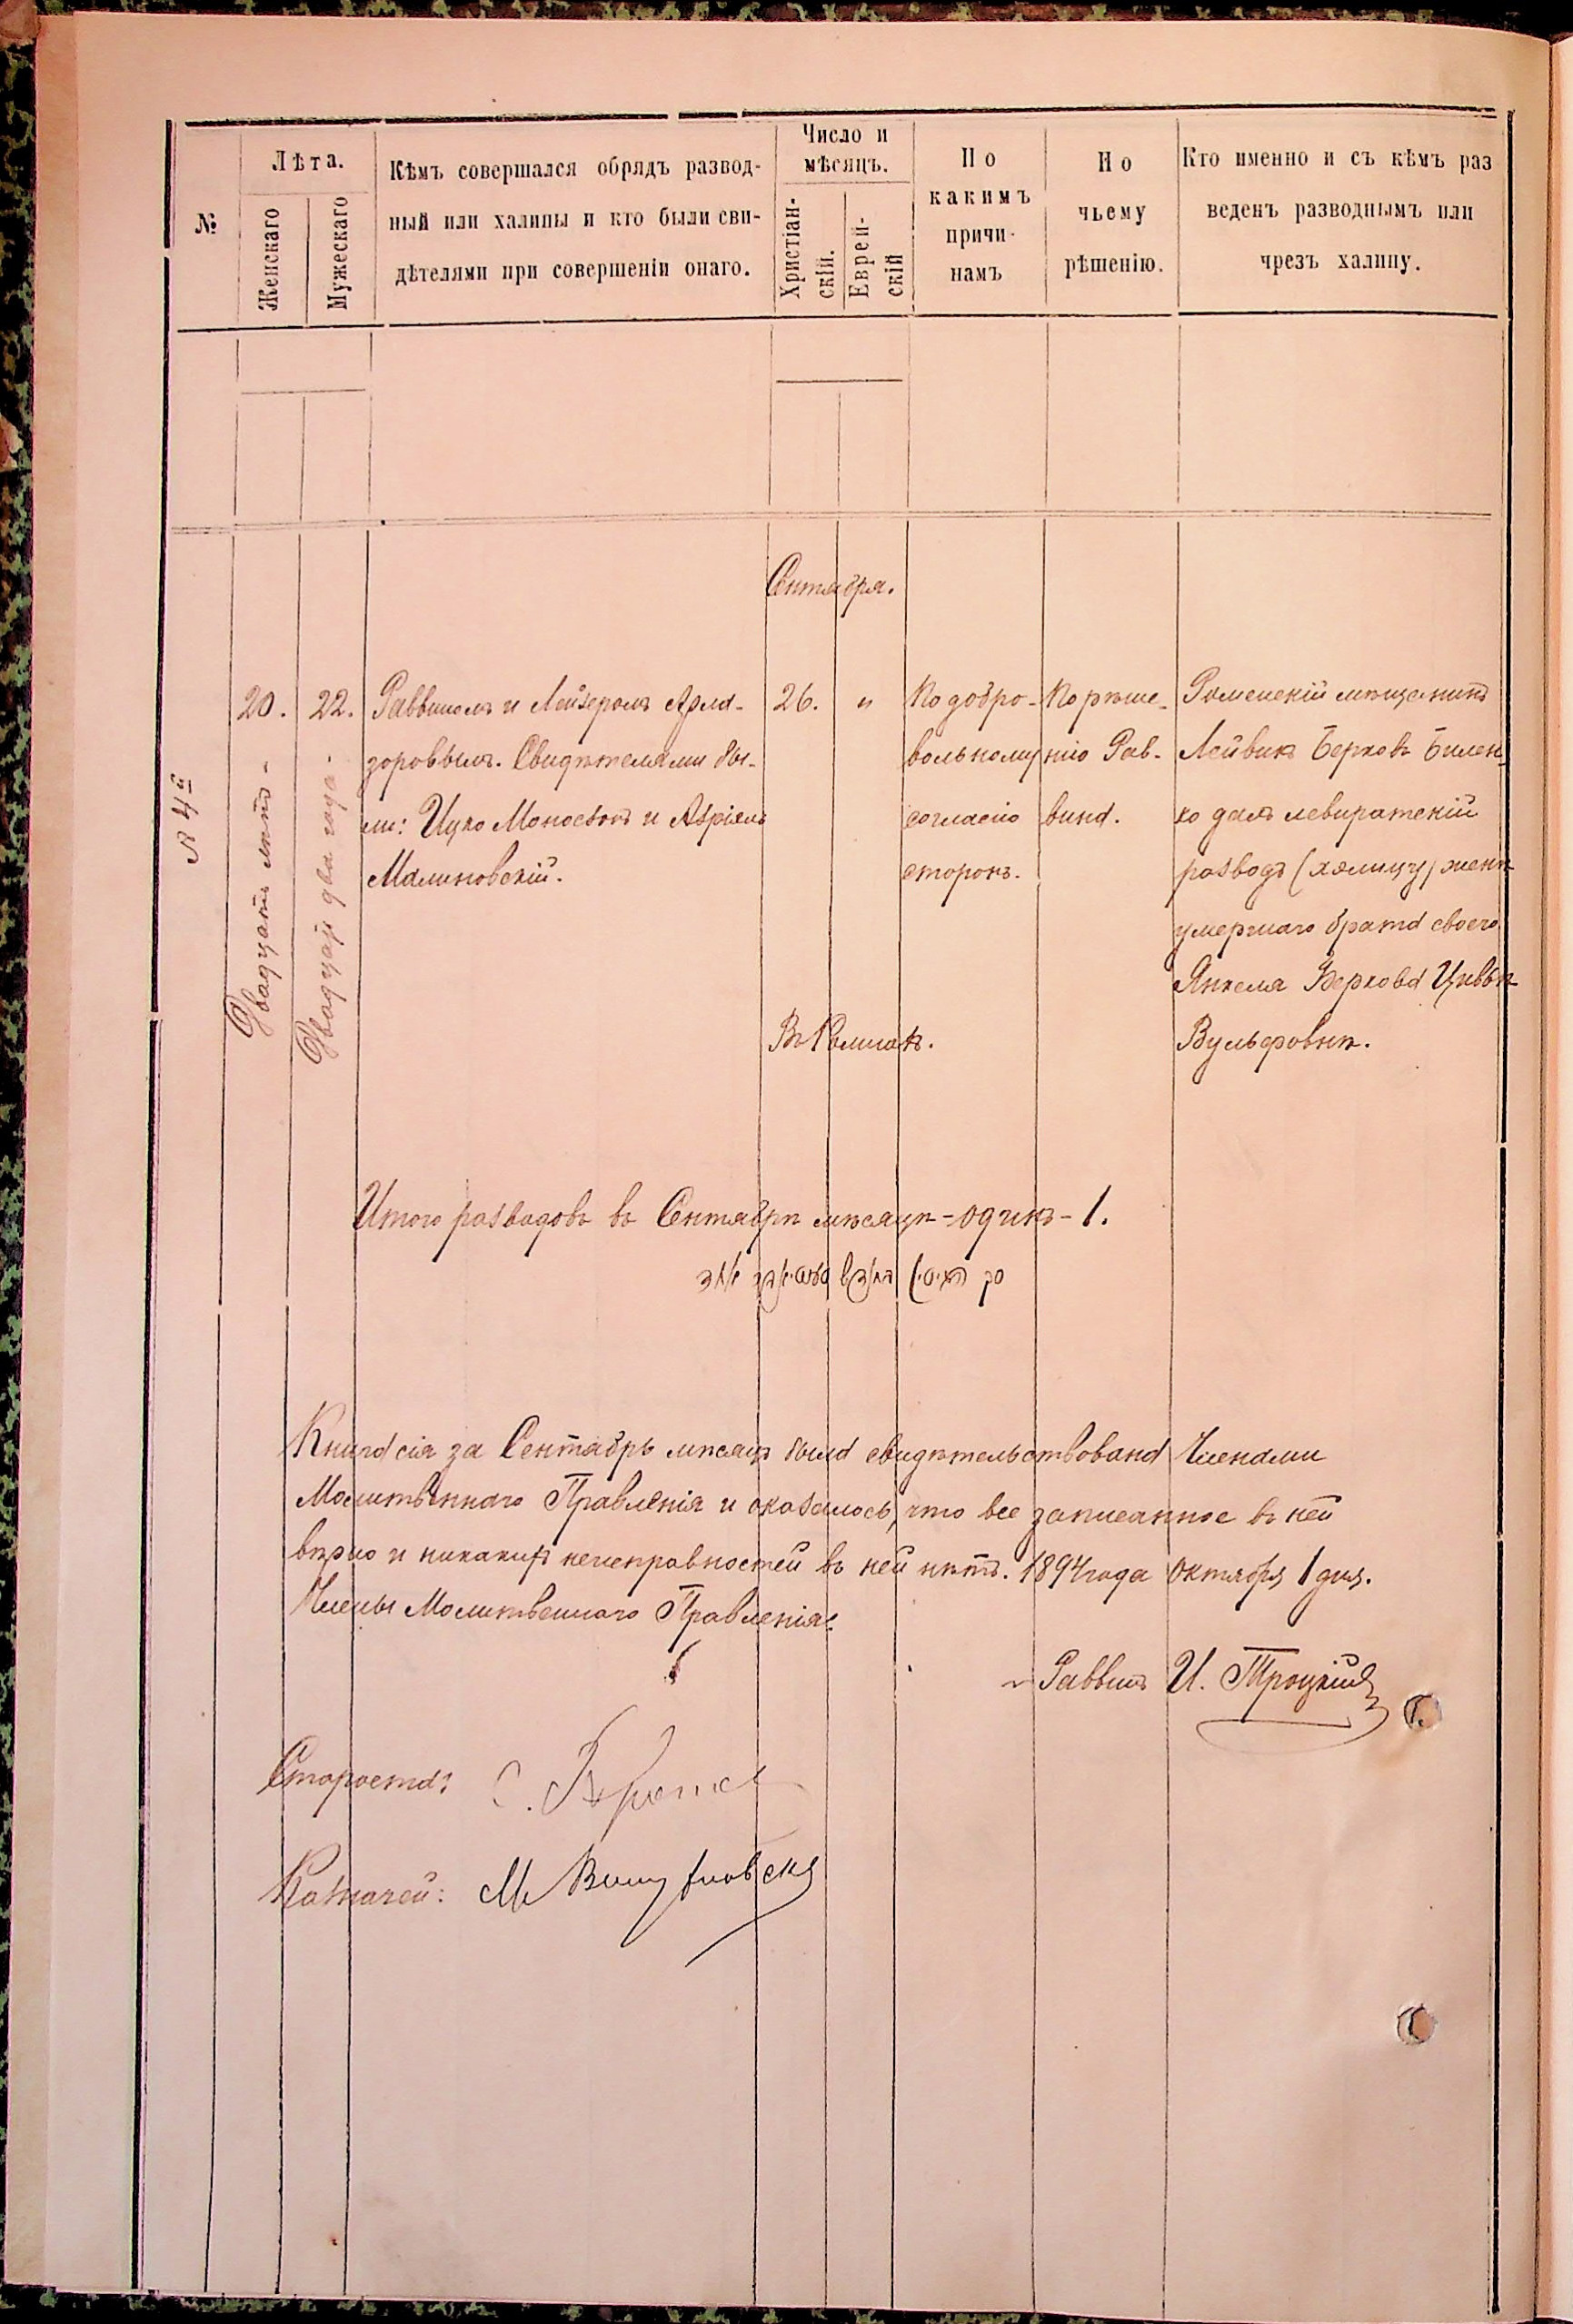 №
Лѣта.
Женскаго
Мужескаго
Кѣмъ совершался обрядъ развод-
ный или халицы и кто были сви-
дѣтелями при совершеніи онаго.
Число и
мѣсяцъ.
Христіан-
скій.
Еврей-
скій
По
какимъ
причи-
намъ
По
чьему
рѣшенію.
Кто именно и съ кѣмъ раз
веденъ разводнымъ или
чрезъ халицу.
Сентября.
№ 4й
20.
Двадцать лѣтъ -
22.
Двадцать два года -
Раввиномъ и Лейзеромъ
Свидѣтелями бы-
ли: Ицко и Азріель
Малиновскій.
26.
"
Въ Ромнахъ.
По добро-
вольному
согласію
сторонъ.
По рѣше-
нію Рав-
вина.
Роменскій мѣщанинъ
Лейвикъ Берковъ Билен-
ко далъ левиратскій
разводъ (халицу) женѣ
умершаго брата своего
Янкеля Беркова Цивьѣ
Вульфовнѣ.
Итого разводовъ въ Сентябрѣ мѣсяцѣ - одинъ - 1.
Книга сія за Сентябрь мѣсяцъ была свидѣтельствована Членами
Молитвеннаго Правленія и оказалось, что все записанное въ ней
вѣрно и никакихъ неисправностей въ ней нѣтъ. 1894 года Октября 1 дня.
Члены Молитвеннаго Правленія:
Раввинъ И. Троцкій
Староста:
Казначей: М